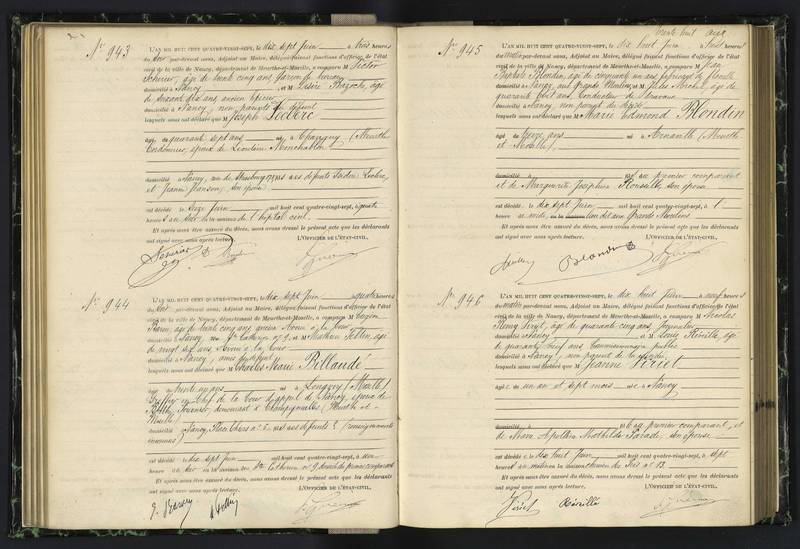 N° 943
L'AN MIL HUIT CENT QUATRE-VINGT-SEPT, le dix sept juin à trois heures
du soir par-devant nous, Adjoint au Maire, délégué faisant fonctions d'officier de l'état
civil de la ville de Nancy, département de Meurthe-et-Moselle, a comparu M Victor
âgé de trente cinq ans garçon de bureau
domicilié à Nancy et M Bazoche, âgé
de soixante dix ans ancien
domicilié à Nancy, non parents du défunt
lesquels nous ont déclaré que M Joseph Leclerc
âgé de quarante sept ans né à Chavigny (Meurthe
Cordonnier, époux de Léontine
domicilié à Nancy, rue de Strasbourg fils des défunts Isidore Leclerc
et Jeanne son épouse
est décédé le seize juin mil huit cent quatre-vingt-sept, à quatre
heures du soir en la maison de l'hôpital civil.
Et après nous être assuré du décès, nous avons dressé le présent acte que les déclarants
ont signé avec nous après lecture. L'OFFICIER DE L'ÉTAT-CIVIL,
N° 944
L'AN MIL HUIT CENT QUATRE-VINGT-SEPT, le dix sept juin à quatre heures
du soir par-devant nous, Adjoint au Maire, délégué faisant fonctions d'officier de l'état
civil de la ville de Nancy, département de Meurthe-et-Moselle, a comparu M
âgé de trente cinq ans à la Cour
domicilié à Nancy, rue Ste Catherine n° 9 et M Mathieu
de vingt six ans à la Cour
domicilié à Nancy, amis du défunt
lesquels nous ont déclaré que M Charles Marie Billaudé
âgé de trente un ans né à Longwy (Mlle)
Greffier en Chef de la Cour d'appel de Nancy, époux de
demeurant à Champigneulles (Meurthe et
Moselle)
domicilié à Nancy, fils des défunts (renseignements
inconnus)
est décédé le dix sept juin mil huit cent quatre-vingt-sept, à une
heure du soir en la maison rue Ste Catherine n° 9 demeure du premier comparant
Et après nous être assuré du décès, nous avons dressé le présent acte que les déclarants
ont signé avec nous après lecture. L'OFFICIER DE L'ÉTAT-CIVIL,
N° 945
L'AN MIL HUIT CENT QUATRE-VINGT-SEPT, le dix huit juin à huit heures
du matin par-devant nous, Adjoint au Maire, délégué faisant fonctions d'officier de l'état
civil de la ville de Nancy, département de Meurthe-et-Moselle, a comparu M Jean
Baptiste Blondin, âgé de cinquante un ans
domicilié à Nancy, aux Grands Moulins et M Jules âgé de
quarante huit ans, Conducteur de travaux
domicilié à Nancy, non parent du décédé
lesquels nous ont déclaré que M Marie Edmond Blondin
âgé de treize ans né à (Meurthe
et Moselle)
domicilié à fils au premier comparant
et de Marguerite Joséphine son épouse
est décédé le dix sept juin mil huit cent quatre-vingt-sept, à 1
heure lieu dit aux Grands Moulins
Et après nous être assuré du décès, nous avons dressé le présent acte que les déclarants
ont signé avec nous après lecture. L'OFFICIER DE L'ÉTAT-CIVIL,
Blondin
N° 946
L'AN MIL HUIT CENT QUATRE-VINGT-SEPT, le dix huit juin à neuf heures
du matin par-devant nous, Adjoint au Maire, délégué faisant fonctions d'officier de l'état
civil de la ville de Nancy, département de Meurthe-et-Moselle, a comparu M Nicolas
Rémy Piriet, âgé de quarante cinq ans, Journalier
domicilié à Nancy et M Louis Réville, âgé
de quarante neuf ans Commissionnaire public
domicilié à Nancy, non parent de la décédée
lesquels nous ont déclaré que M Jeanne Piriet
âgée de un an et sept mois née à Nancy
domicilié à fille au premier comparant, et
de Marie Apolline Mathilde son épouse
est décédée le dix huit juin mil huit cent quatre-vingt-sept, à sept
heures du matin en la maison chemin de n° 13
Et après nous être assuré du décès, nous avons dressé le présent acte que les déclarants
ont signé avec nous après lecture. L'OFFICIER DE L'ÉTAT-CIVIL,
Piriet Réville